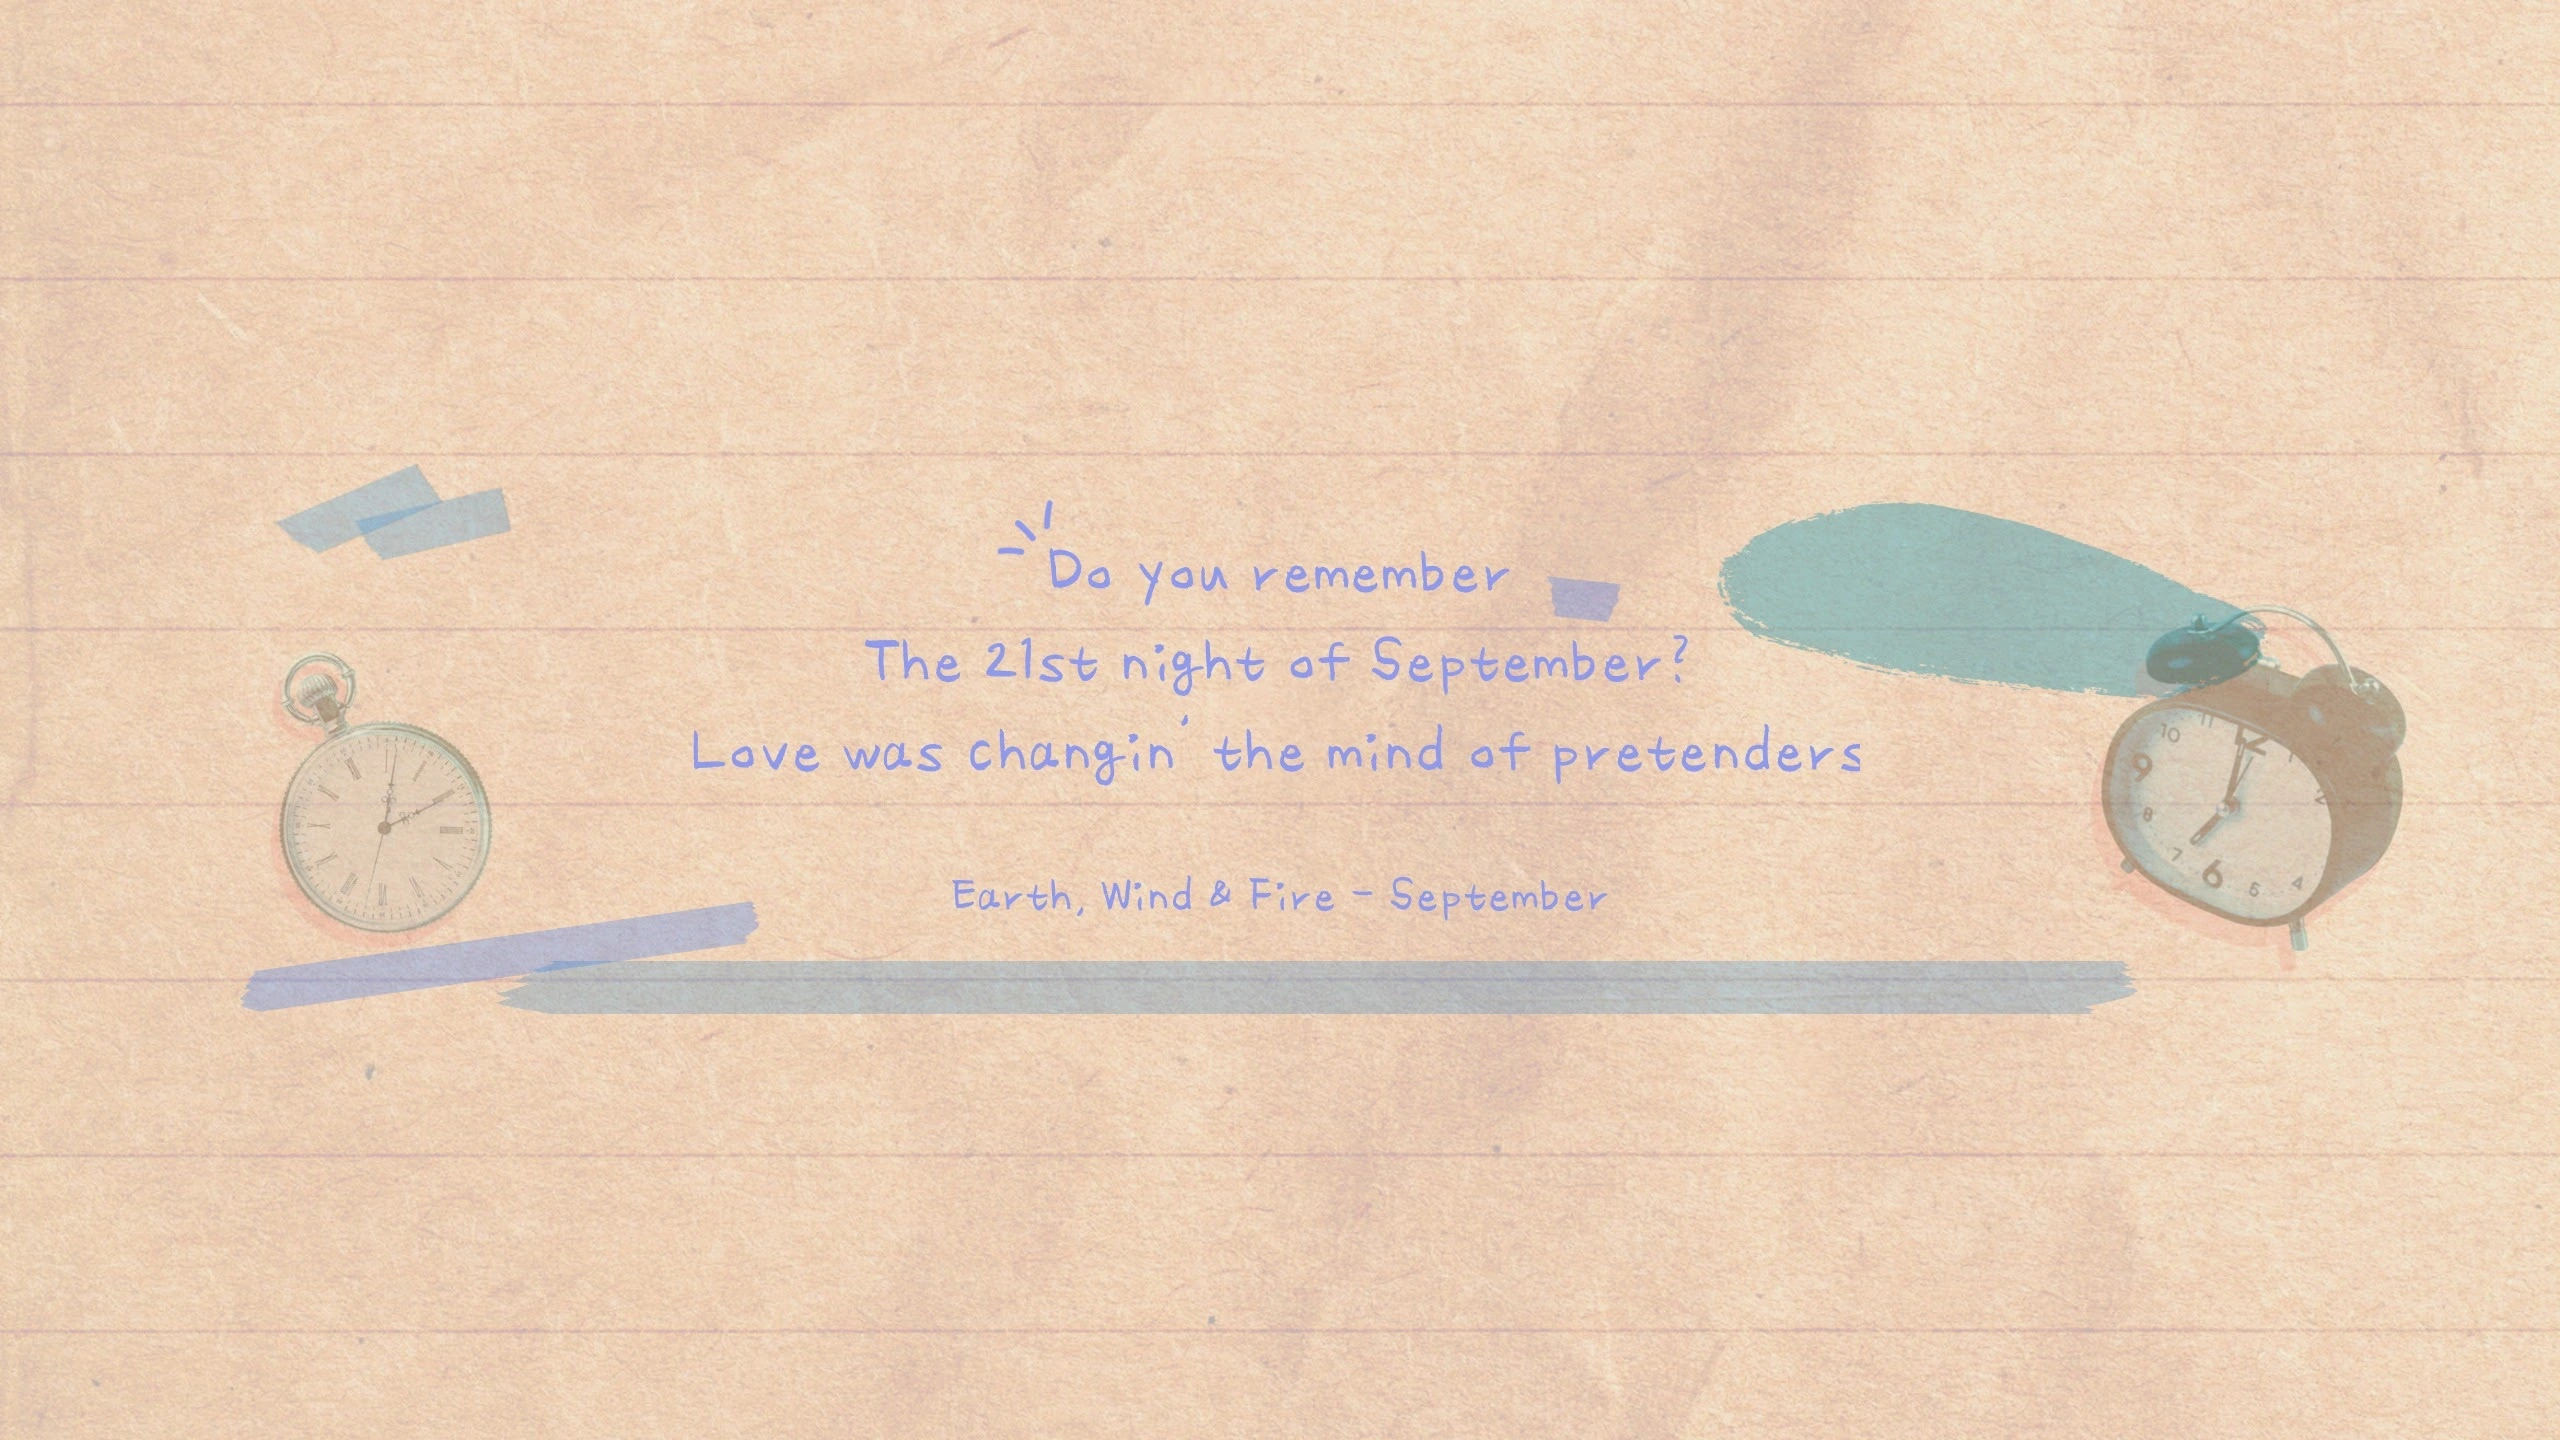 Do you remember
The 21st night of September?
Love was changin' the mind of pretenders
Earth, Wind & Fire - September
10
11
12
1
2
9
8
7
6
5
4